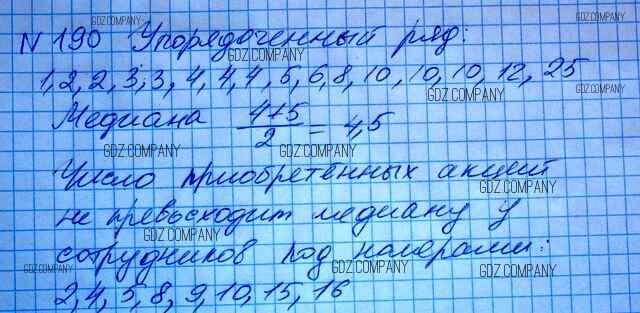 N 190 Упорядоченный ряд:
1, 2, 2, 3, 3, 4, 4, 4, 5, 6, 8, 10, 10, 10, 12, 25
Медиана 4+5/2 = 4,5
Число приобретенных акций
не превосходит медиану у
сотрудников под номерами:
2, 4, 5, 8, 9, 10, 15, 16
GDZ.COMPANY
GDZ.COMPANY
GDZ.COMPANY
GDZ.COMPANY
GDZ.COMPANY
GDZ.COMPANY
GDZ.COMPANY
GDZ.COMPANY
GDZ.COMPANY
GDZ.COMPANY
GDZ.COMPANY
GDZ.COMPANY
GDZ.COMPANY